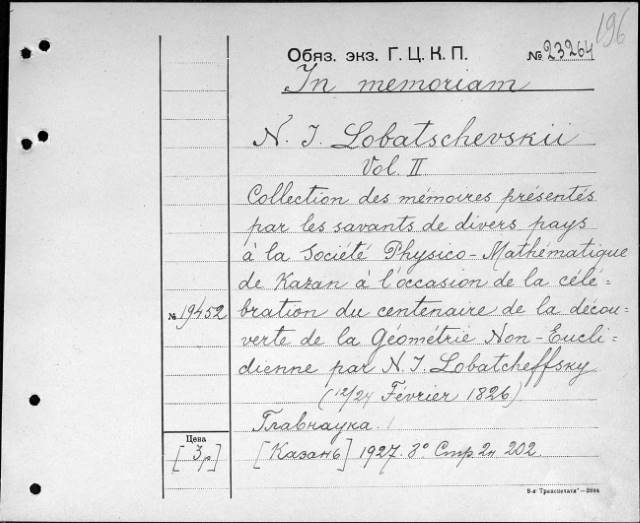 196
Обяз. экз. Г. Ц. К. П. № 23264
In memoriam
N. J. Lobatschevskii
Vol. II
Collection des mémoires présentés
par les savants de divers pays
à la Société Physico-Mathématique
de Kazan à l'occasion de la célé=
№ 19452 bration du centenaire de la décou=
verte de la Géométrie Non-Eucli=
dienne par N. J. Lobatcheffsky
(12/24 Février 1826)
Главнаука.
Цена
[3р] [Казань] 1927. 8° Стр. 2н. 202.